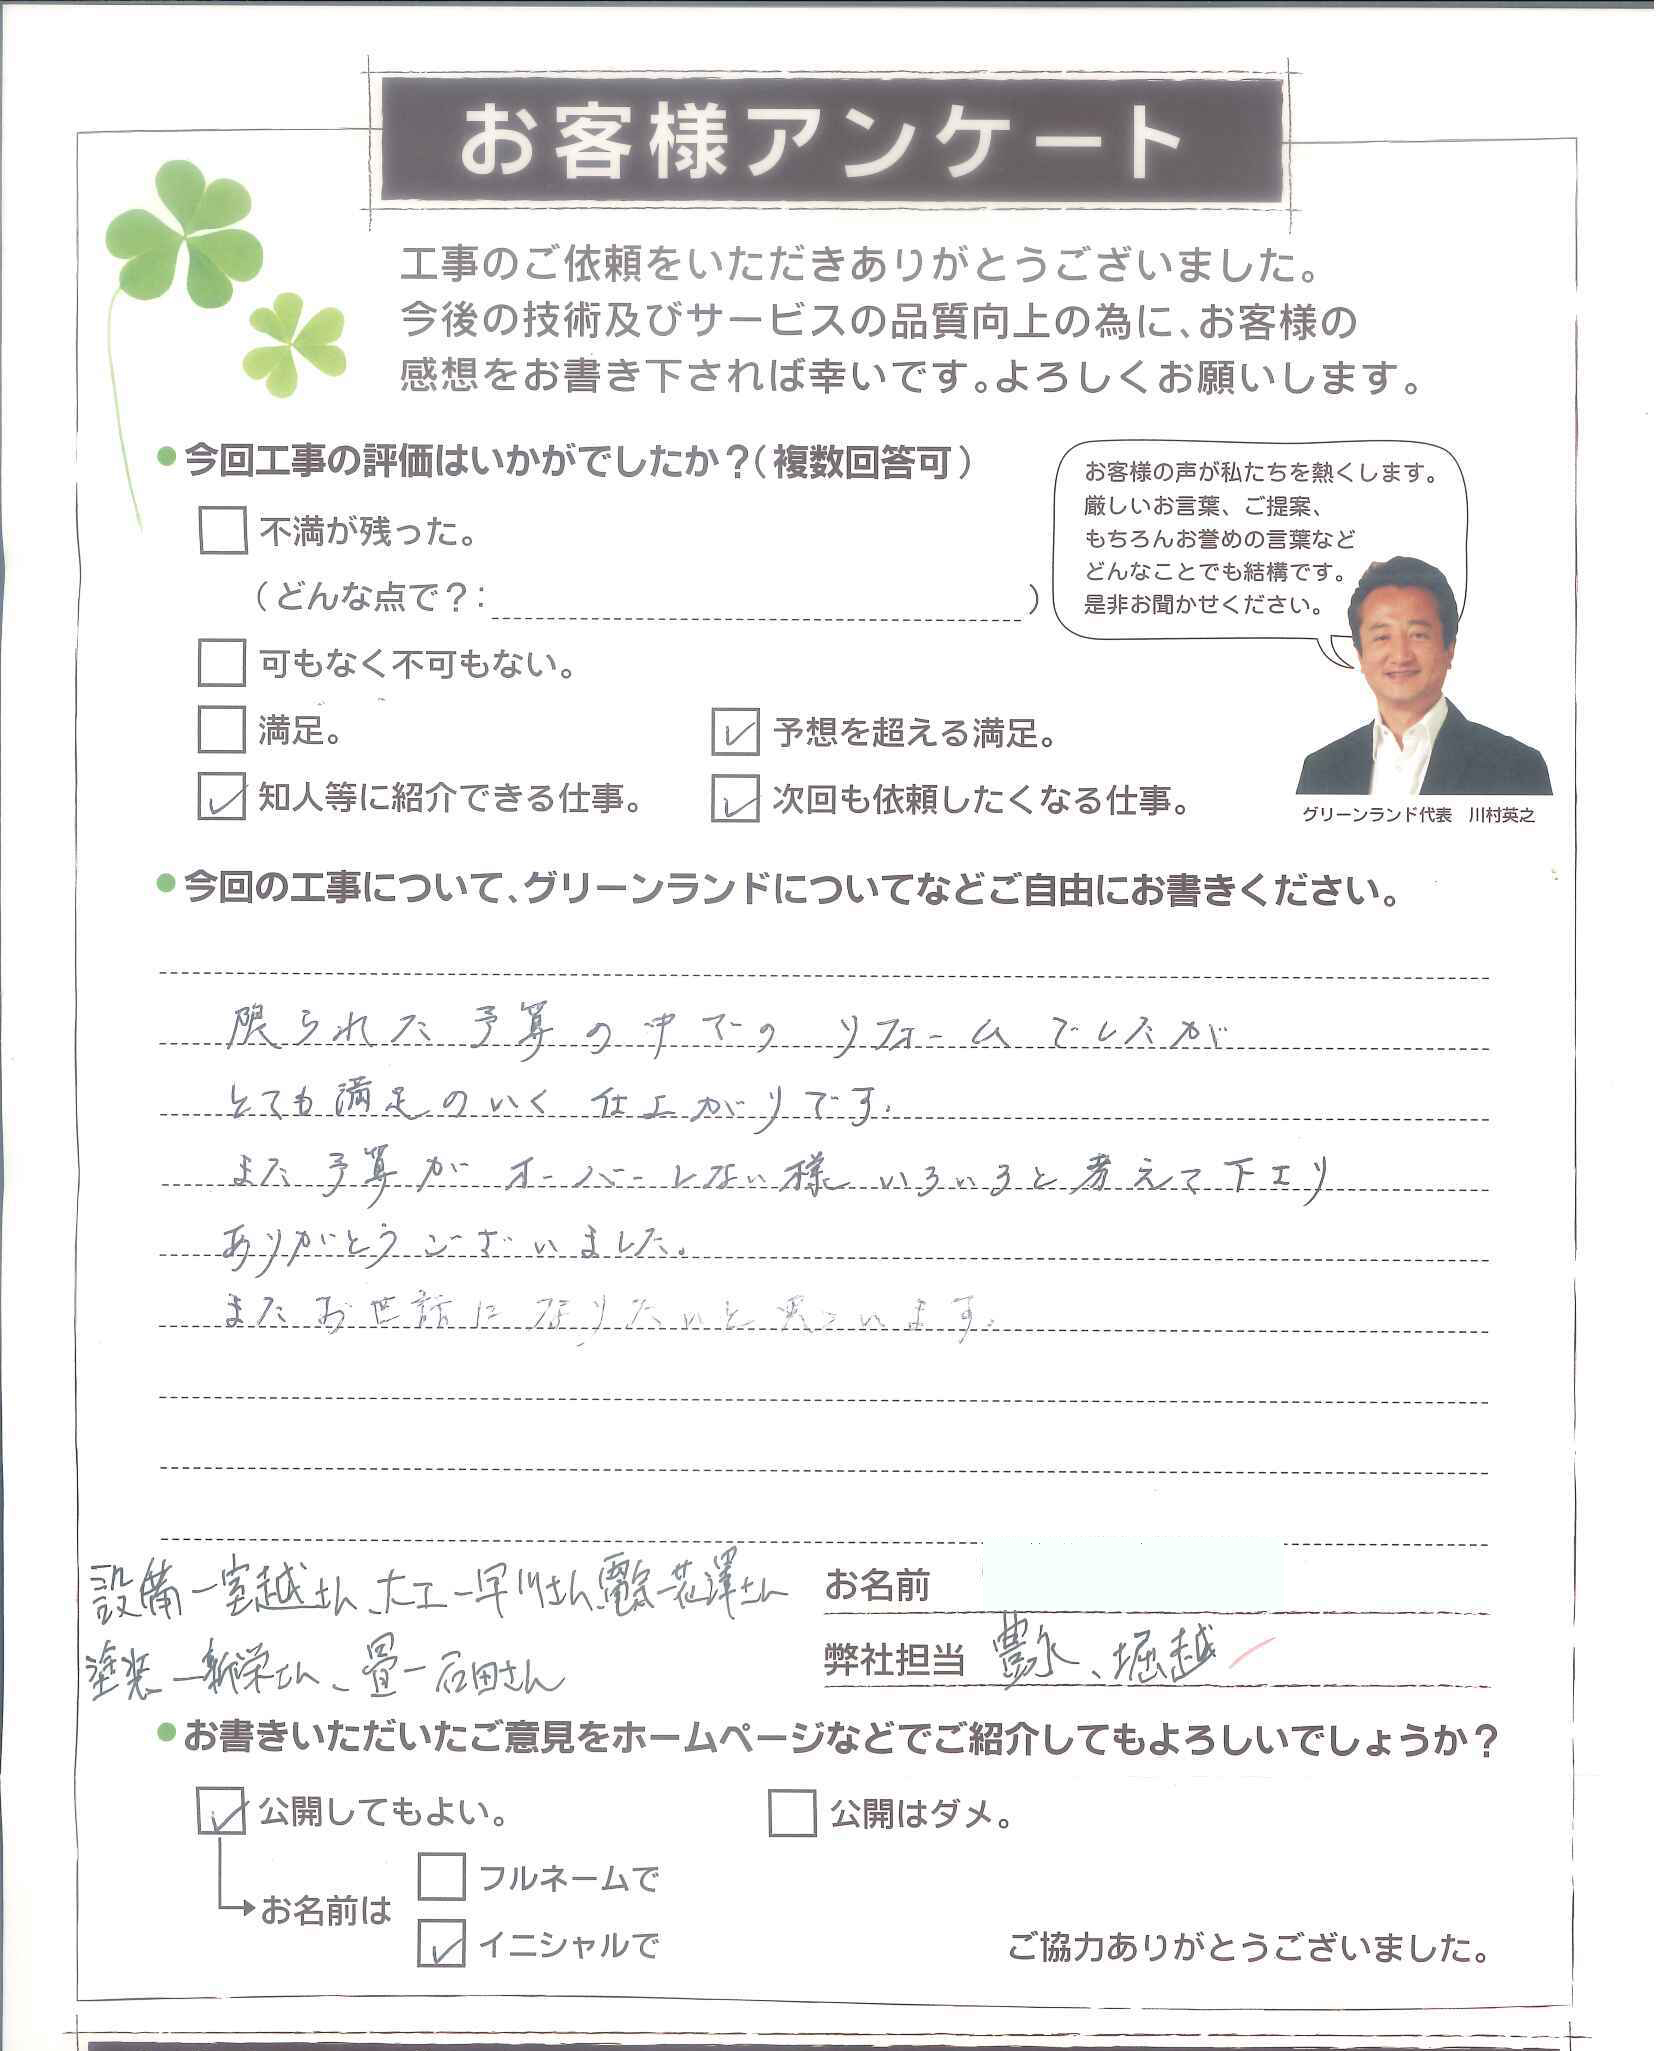 お客様アンケート
工事のご依頼をいただきありがとうございました。
今後の技術及びサービスの品質向上の為に、お客様の
感想をお書き下されば幸いです。よろしくお願いします。
今回工事の評価はいかがでしたか？（複数回答可）
お客様の声が私たちを熱くします。
厳しいお言葉、ご提案、
もちろんお誉めの言葉など
どんなことでも結構です。
是非お聞かせください。
不満が残った。
（どんな点で？: ）
可もなく不可もない。
満足。
予想を超える満足。
知人等に紹介できる仕事。
次回も依頼したくなる仕事。
グリーンランド代表 川村英之
今回の工事について、グリーンランドについてなどご自由にお書きください。
限られた予算の中でのリフォームでしたが
とても満足のいく仕上がりです。
また予算がオーバーしない様いろいろと考えて下さり
ありがとうございました。
またお世話になりたいと思います。
設備ー室越さん、大工ー早川さん、電気ー花澤さん
塗装ー新栄さん、畳ー石田さん
お名前
弊社担当 豊永、堀越
お書きいただいたご意見をホームページなどでご紹介してもよろしいでしょうか？
公開してもよい。
公開はダメ。
お名前は
フルネームで
イニシャルで
ご協力ありがとうございました。